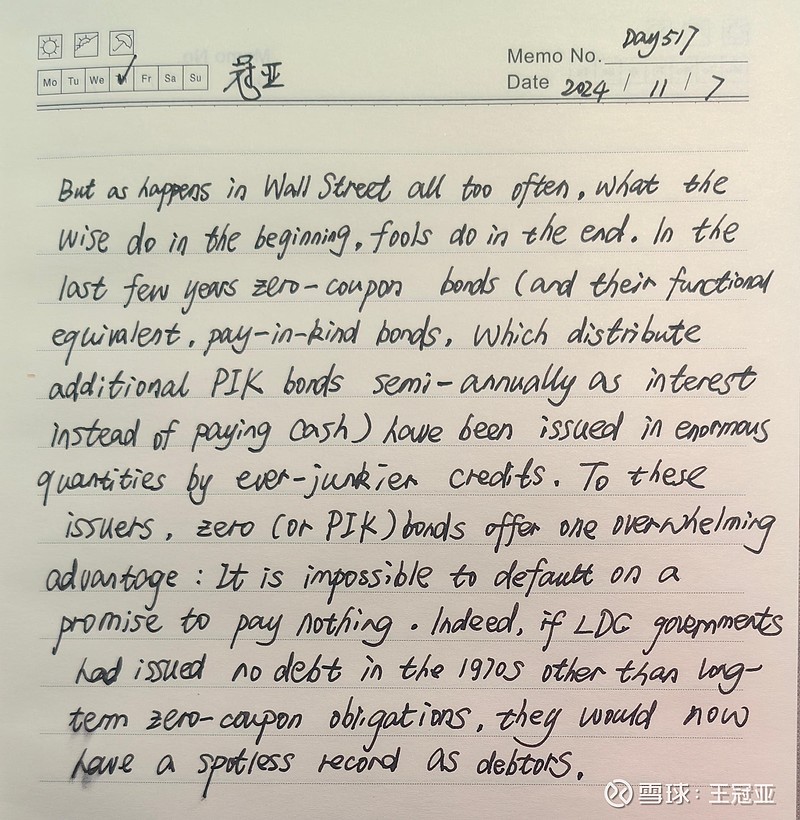 Day517
Memo No.
Mo Tu We ✓ Fr Sa Su
冠亚
Date 2024 / 11 / 7
But as happens in Wall Street all too often, what the
wise do in the beginning, fools do in the end. In the
last few years zero-coupon bonds (and their functional
equivalent, pay-in-kind bonds, which distribute
additional PIK bonds semi-annually as interest
instead of paying cash) have been issued in enormous
quantities by ever-junkier credits. To these
issuers, zero (or PIK) bonds offer one overwhelming
advantage: It is impossible to default on a
promise to pay nothing. Indeed, if LDC governments
had issued no debt in the 1970s other than long-
term zero-coupon obligations, they would now
have a spotless record as debtors.
雪球：王冠亚